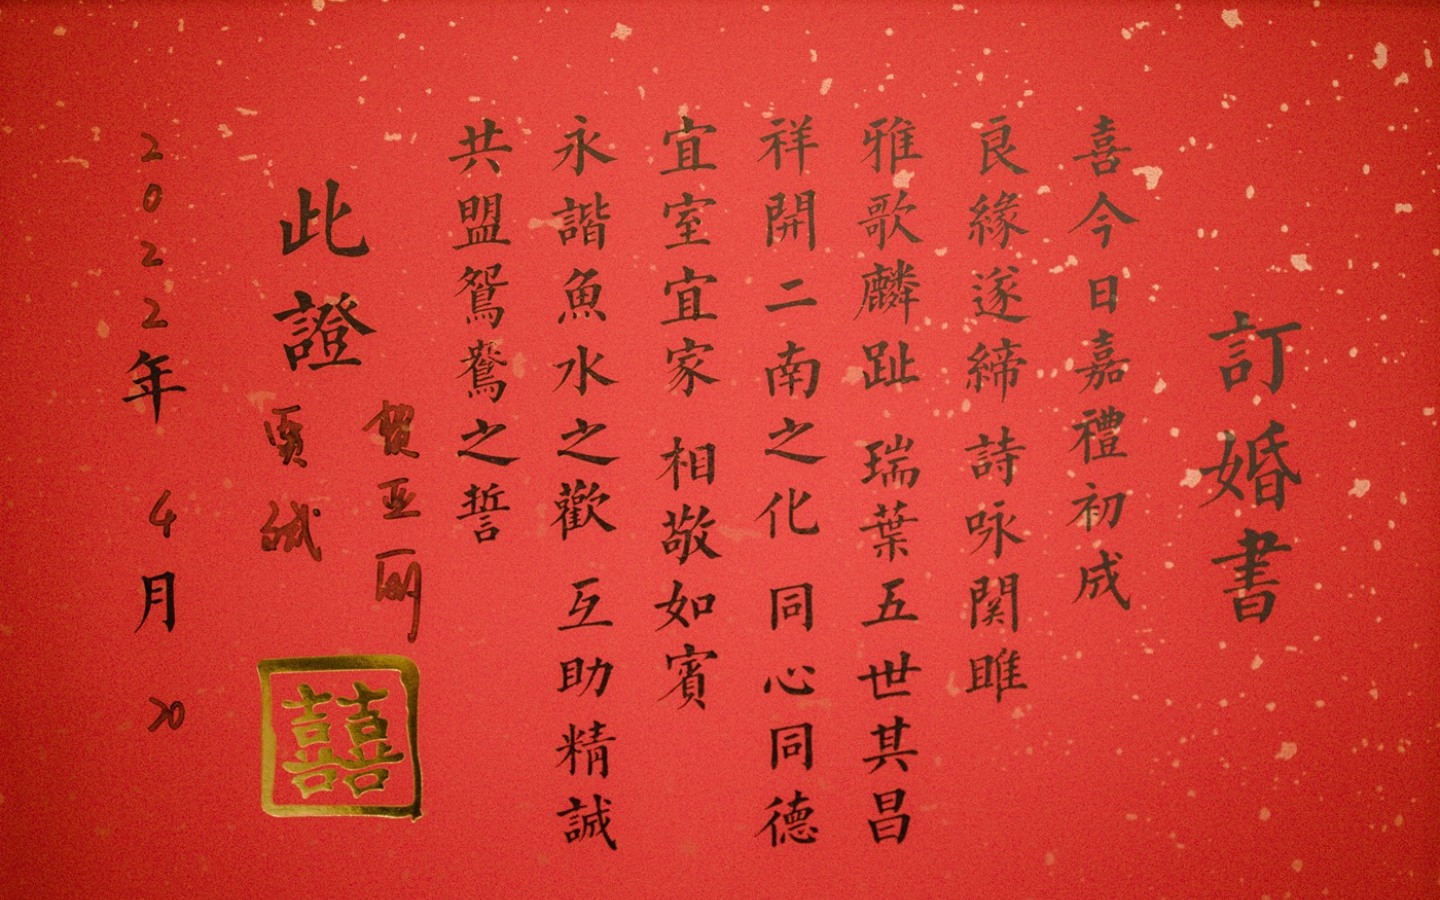 訂婚書
喜今日嘉禮初成
良緣遂締 詩咏関雎
雅歌麟趾 瑞葉五世其昌
祥開二南之化 同心同德
宜室宜家 相敬如賓
永諧魚水之歡 互助精誠
共盟鴛鴦之誓
此證
賀亚丽
贾斌
2022年 4月 20
囍